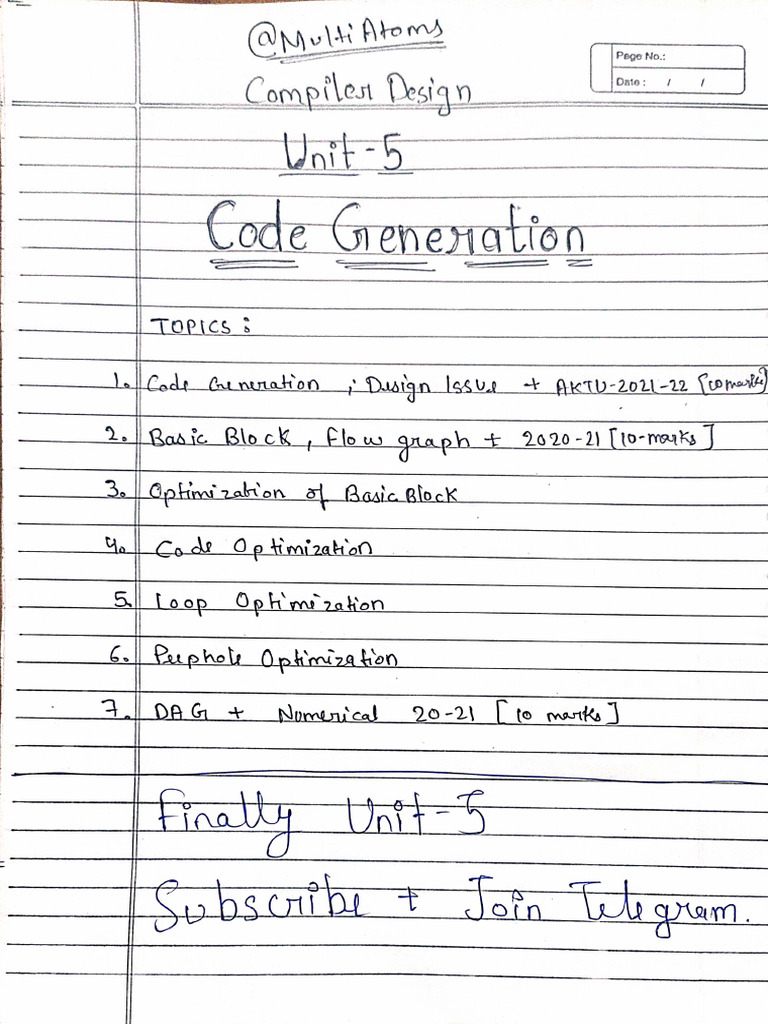 @MultiAtoms
Page No.:
Date : / /
Compiler Design
Unit-5
Code Generation
TOPICS :
1. Code Generation ; Design Issue + AKTU-2021-22 [10 marks]
2. Basic Block, Flow graph + 2020-21 [10-marks]
3. Optimization of Basic Block
4. Code Optimization
5. Loop Optimization
6. Peephole Optimization
7. DAG + Numerical 20-21 [10 marks]
Finally Unit-5
Subscribe + Join Telegram.